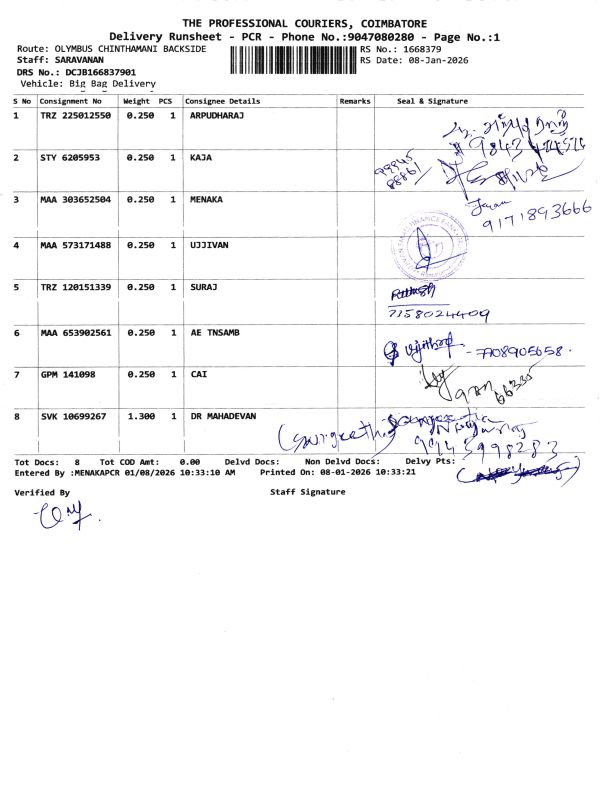 THE PROFESSIONAL COURIERS, COIMBATORE
Delivery Runsheet - PCR - Phone No.:9047080280 - Page No.:1
Route: OLYMBUS CHINTHAMANI BACKSIDE RS No.: 1668379
Staff: SARAVANAN RS Date: 08-Jan-2026
DRS No.: DCJB166837901
Vehicle: Big Bag Delivery
S No Consignment No Weight PCS Consignee Details Remarks Seal & Signature
1 TRZ 225012550 0.250 1 ARPUDHARAJ
2 STY 6205953 0.250 1 KAJA
3 MAA 303652504 0.250 1 MENAKA
9171893666
4 MAA 573171488 0.250 1 UJJIVAN
5 TRZ 120151339 0.250 1 SURAJ
7158024409
6 MAA 653902561 0.250 1 AE TNSAMB
7708905658.
7 GPM 141098 0.250 1 CAI
8 SVK 10699267 1.300 1 DR MAHADEVAN
(Sangeetha)
9945998283
Tot Docs: 8 Tot COD Amt: 0.00 Delvd Docs: Non Delvd Docs: Delvy Pts:
Entered By :MENAKAPCR 01/08/2026 10:33:10 AM Printed On: 08-01-2026 10:33:21
Verified By Staff Signature